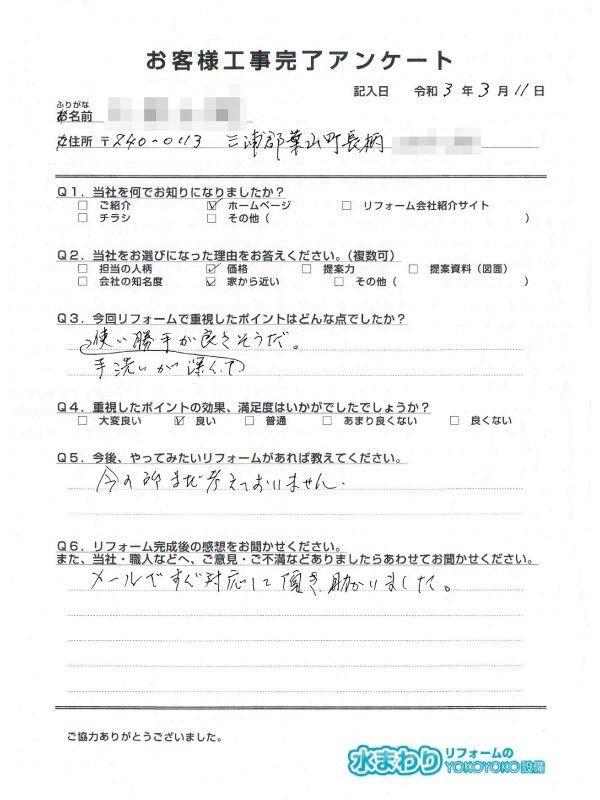 お客様工事完了アンケート
記入日 令和 3 年 3 月 11 日
ふりがな
お名前
ご住所 〒240-0113 三浦郡葉山町長柄
Q1．当社を何でお知りになりましたか？
□ ご紹介 ☑ ホームページ □ リフォーム会社紹介サイト
□ チラシ □ その他（ ）
Q2．当社をお選びになった理由をお答えください。（複数可）
□ 担当の人柄 ☑ 価格 □ 提案力 □ 提案資料（図面）
□ 会社の知名度 ☑ 家から近い □ その他（ ）
Q3．今回リフォームで重視したポイントはどんな点でしたか？
使い勝手が良さそうだ。
手洗いが深くて
Q4．重視したポイントの効果、満足度はいかがでしたでしょうか？
□ 大変良い ☑ 良い □ 普通 □ あまり良くない □ 良くない
Q5．今後、やってみたいリフォームがあれば教えてください。
今の所まだ考えておりません.
Q6．リフォーム完成後の感想をお聞かせください。
また、当社・職人などへ、ご意見・ご不満などありましたらあわせてお聞かせください。
メールですぐ対応して頂き、助かりました。
ご協力ありがとうございました。
水まわりリフォームのYOKOYOKO設備